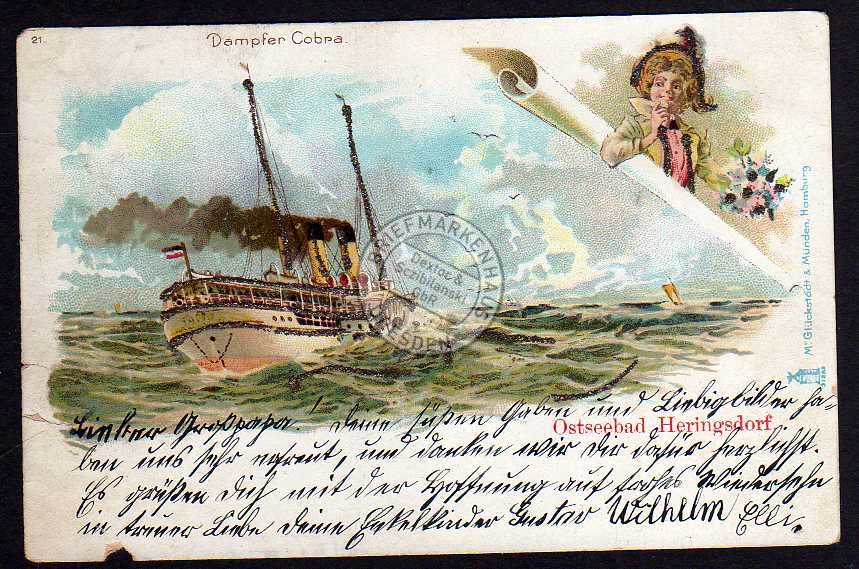 21.
Dampfer Cobra.
BRIEFMARKENHAUS
Dextoc &
Sczibilanski
GbR
DRESDEN
M. Glückstadt & Münden, Hamburg
Ostseebad Heringsdorf
Lieber Großpapa! deine süßen Gaben und Liebigbilder ha-
ben uns sehr erfreut, und danken wir Dir dafür herzlichst.
Es grüßen Dich mit der Hoffnung auf frohes Wiedersehn
in treuer Liebe deine Enkelkinder Gustav Wilhelm Elli.